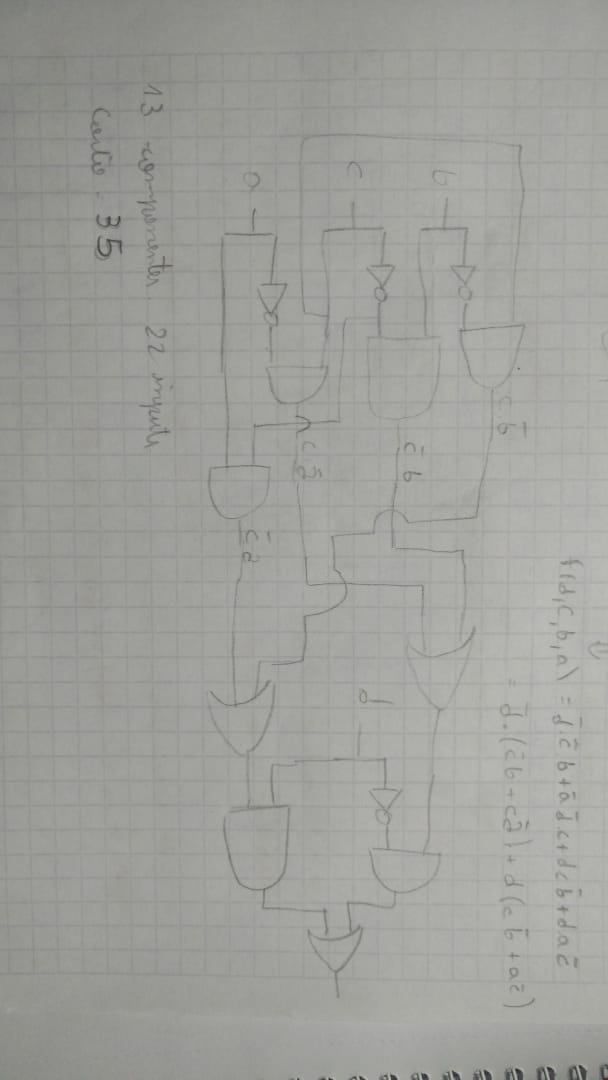 f(d,c,b,a) = d̄c̄b + ād̄c + dcb̄ + dac̄
= d̄.(c̄b + cā) + d(cb̄ + ac̄)
b
c
a
c b̄
c̄ b
c ā
c̄ a
d
13 componentes. 22 inputs
35